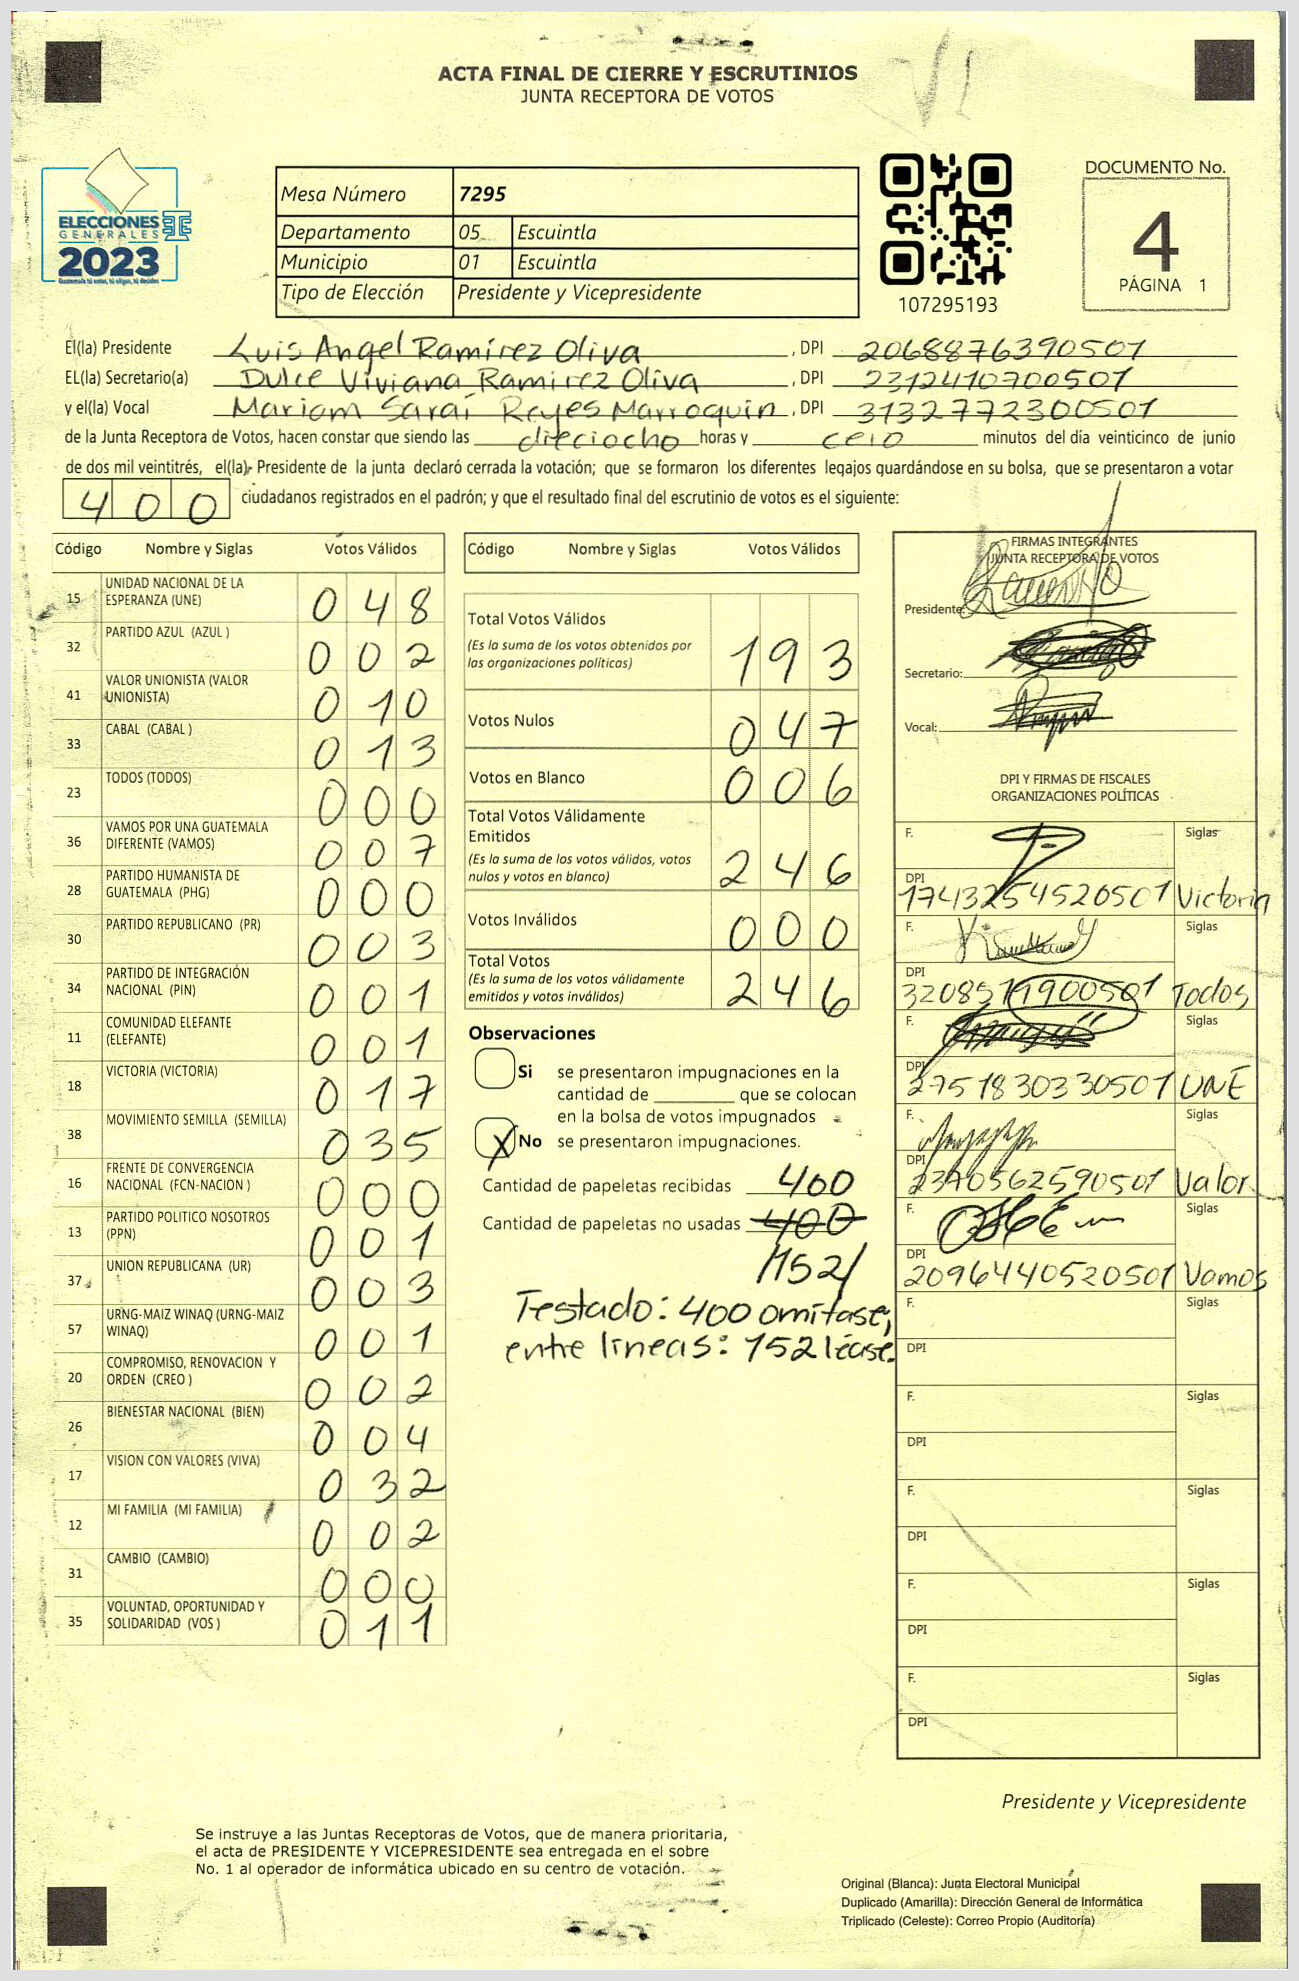 ACTA FINAL DE CIERRE Y ESCRUTINIOS
JUNTA RECEPTORA DE VOTOS
VI
ELECCIONES
GENERALES
2023
Mesa Número 7295
Departamento 05 Escuintla
Municipio 01 Escuintla
Tipo de Elección Presidente y Vicepresidente
107295193
DOCUMENTO No.
4
PÁGINA 1
El(la) Presidente Luis Angel Ramírez Oliva, DPI 2068876390501
EL(la) Secretario(a) Dulce Viviana Ramirez Oliva, DPI 2312410700501
y el(la) Vocal Mariam Saraí Reyes Marroquin, DPI 3132772300501
de la Junta Receptora de Votos, hacen constar que siendo las dieciocho horas y cero minutos del día veinticinco de junio
de dos mil veintitrés, el(la) Presidente de la junta declaró cerrada la votación; que se formaron los diferentes legajos guardándose en su bolsa, que se presentaron a votar
400 ciudadanos registrados en el padrón; y que el resultado final del escrutinio de votos es el siguiente:
Código Nombre y Siglas Votos Válidos
15 UNIDAD NACIONAL DE LA ESPERANZA (UNE) 048
32 PARTIDO AZUL (AZUL ) 002
41 VALOR UNIONISTA (VALOR UNIONISTA) 010
33 CABAL (CABAL ) 013
23 TODOS (TODOS) 000
36 VAMOS POR UNA GUATEMALA DIFERENTE (VAMOS) 007
28 PARTIDO HUMANISTA DE GUATEMALA (PHG) 000
30 PARTIDO REPUBLICANO (PR) 003
34 PARTIDO DE INTEGRACIÓN NACIONAL (PIN) 001
11 COMUNIDAD ELEFANTE (ELEFANTE) 001
18 VICTORIA (VICTORIA) 017
38 MOVIMIENTO SEMILLA (SEMILLA) 035
16 FRENTE DE CONVERGENCIA NACIONAL (FCN-NACION ) 000
13 PARTIDO POLITICO NOSOTROS (PPN) 001
37 UNION REPUBLICANA (UR) 003
57 URNG-MAIZ WINAQ (URNG-MAIZ WINAQ) 001
20 COMPROMISO, RENOVACION Y ORDEN (CREO ) 002
26 BIENESTAR NACIONAL (BIEN) 004
17 VISION CON VALORES (VIVA) 032
12 MI FAMILIA (MI FAMILIA) 002
31 CAMBIO (CAMBIO) 000
35 VOLUNTAD, OPORTUNIDAD Y SOLIDARIDAD (VOS ) 011
Código Nombre y Siglas Votos Válidos
Total Votos Válidos 193
(Es la suma de los votos obtenidos por
las organizaciones políticas)
Votos Nulos 047
Votos en Blanco 006
Total Votos Válidamente
Emitidos 246
(Es la suma de los votos válidos, votos
nulos y votos en blanco)
Votos Inválidos 000
Total Votos 246
(Es la suma de los votos válidamente
emitidos y votos inválidos)
Observaciones
Si se presentaron impugnaciones en la
cantidad de ________ que se colocan
en la bolsa de votos impugnados
X No se presentaron impugnaciones.
Cantidad de papeletas recibidas 400
Cantidad de papeletas no usadas 400
/152/
Testado: 400 omítase;
entre lineas: 152 léase.
FIRMAS INTEGRANTES
JUNTA RECEPTORA DE VOTOS
Presidente:
Secretario:
Vocal:
DPI Y FIRMAS DE FISCALES
ORGANIZACIONES POLÍTICAS
F. Siglas
DPI 1743254520501 Victoria
F. Siglas
DPI 3208511900501 Todos
F. Siglas
DPI 2751830330501 UNE
F. Siglas
DPI 2370562590501 Valor
F. Siglas
DPI 2096440520501 Vamos
F. Siglas
DPI
F. Siglas
DPI
F. Siglas
DPI
F. Siglas
DPI
F. Siglas
DPI
Presidente y Vicepresidente
Se instruye a las Juntas Receptoras de Votos, que de manera prioritaria,
el acta de PRESIDENTE Y VICEPRESIDENTE sea entregada en el sobre
No. 1 al operador de informática ubicado en su centro de votación.
Original (Blanca): Junta Electoral Municipal
Duplicado (Amarilla): Dirección General de Informática
Triplicado (Celeste): Correo Propio (Auditoría)